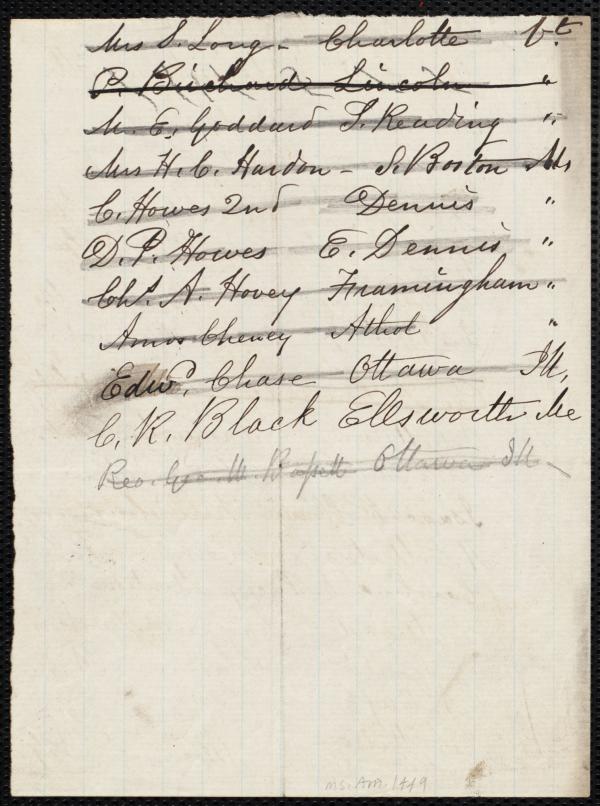 Mrs S. Long - Charlotte Vt
P. Birchard Lincoln "
M. E. Goddard S. Reading "
Mrs H. C. Hardon - S. Boston Ms
C. Howes 2nd Dennis "
D. P. Howes E. Dennis "
Chs. A. Hovey Framingham "
Amos Cheney Athol "
Edwd. Chase Ottawa Ill,
C. R. Black Ellsworth Me
Rev. Geo. W. Bassett Ottawa Ill
MS. Am. 1449